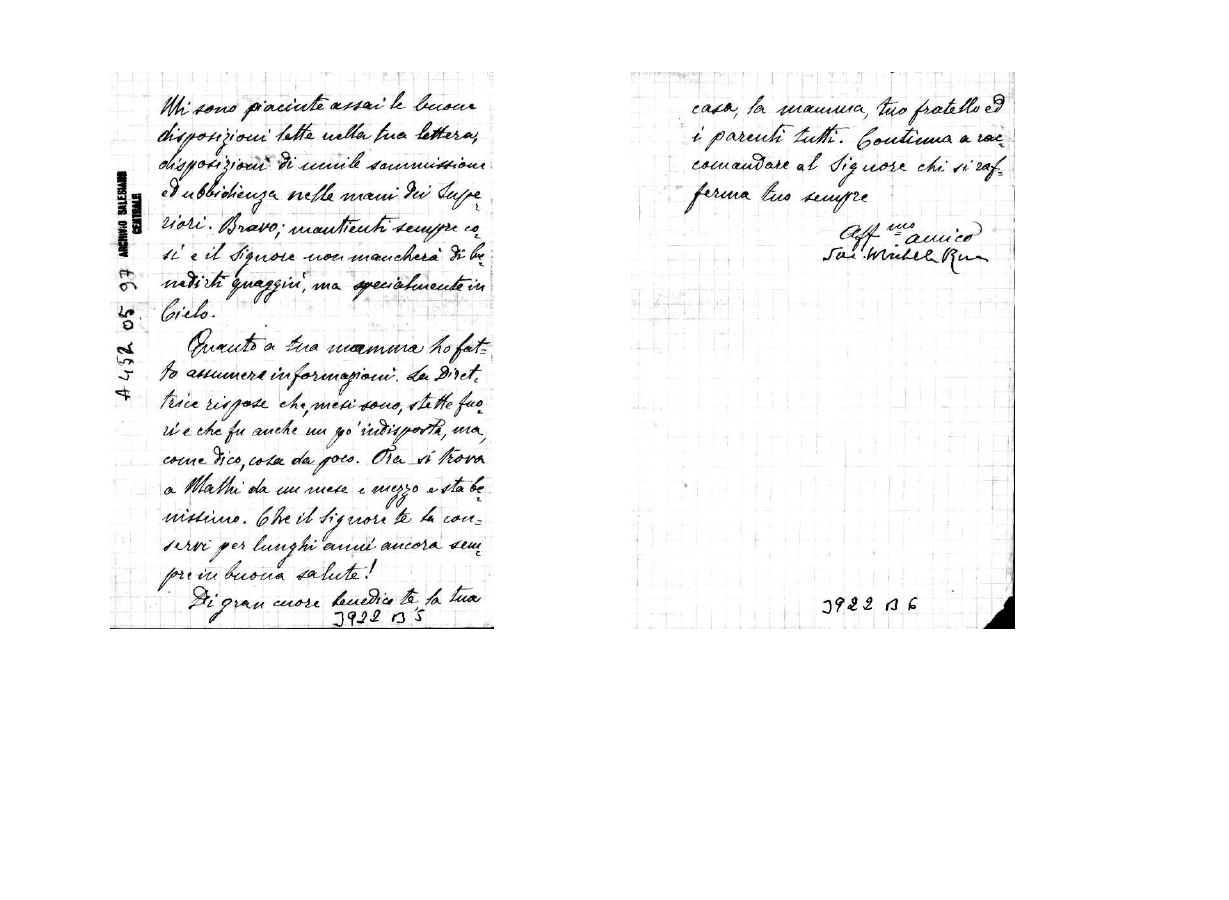 Mi sono piaciute assai le buone
disposizioni lette nella tua lettera,
disposizioni di umile sommissione
ed ubbidienza nelle mani dei Supe-
riori. Bravo; mantienti sempre co-
sì e il Signore non mancherà di be-
nedirti quaggiù, ma specialmente in
Cielo.
Quanto a tua mamma ho fat-
to assumere informazioni. La Diret-
trice rispose che, mesi sono, stette fuo-
ri e che fu anche un po' indisposta, ma,
come dico, cosa da poco. Ora si trova
a Mathi da un mese e mezzo e sta be-
nissimo. Che il Signore te la con-
servi per lunghi anni ancora sem-
pre in buona salute!
Di gran cuore benedico te, la tua
3922 B 5
ARCHIVIO SALESIANO
CENTRALE
A 452 05 97
casa, la mamma, tuo fratello ed
i parenti tutti. Continua a rac-
comandare al Signore chi si raf-
ferma tuo sempre
Aff.mo amico
Sac. Michele Rua
3922 B 6